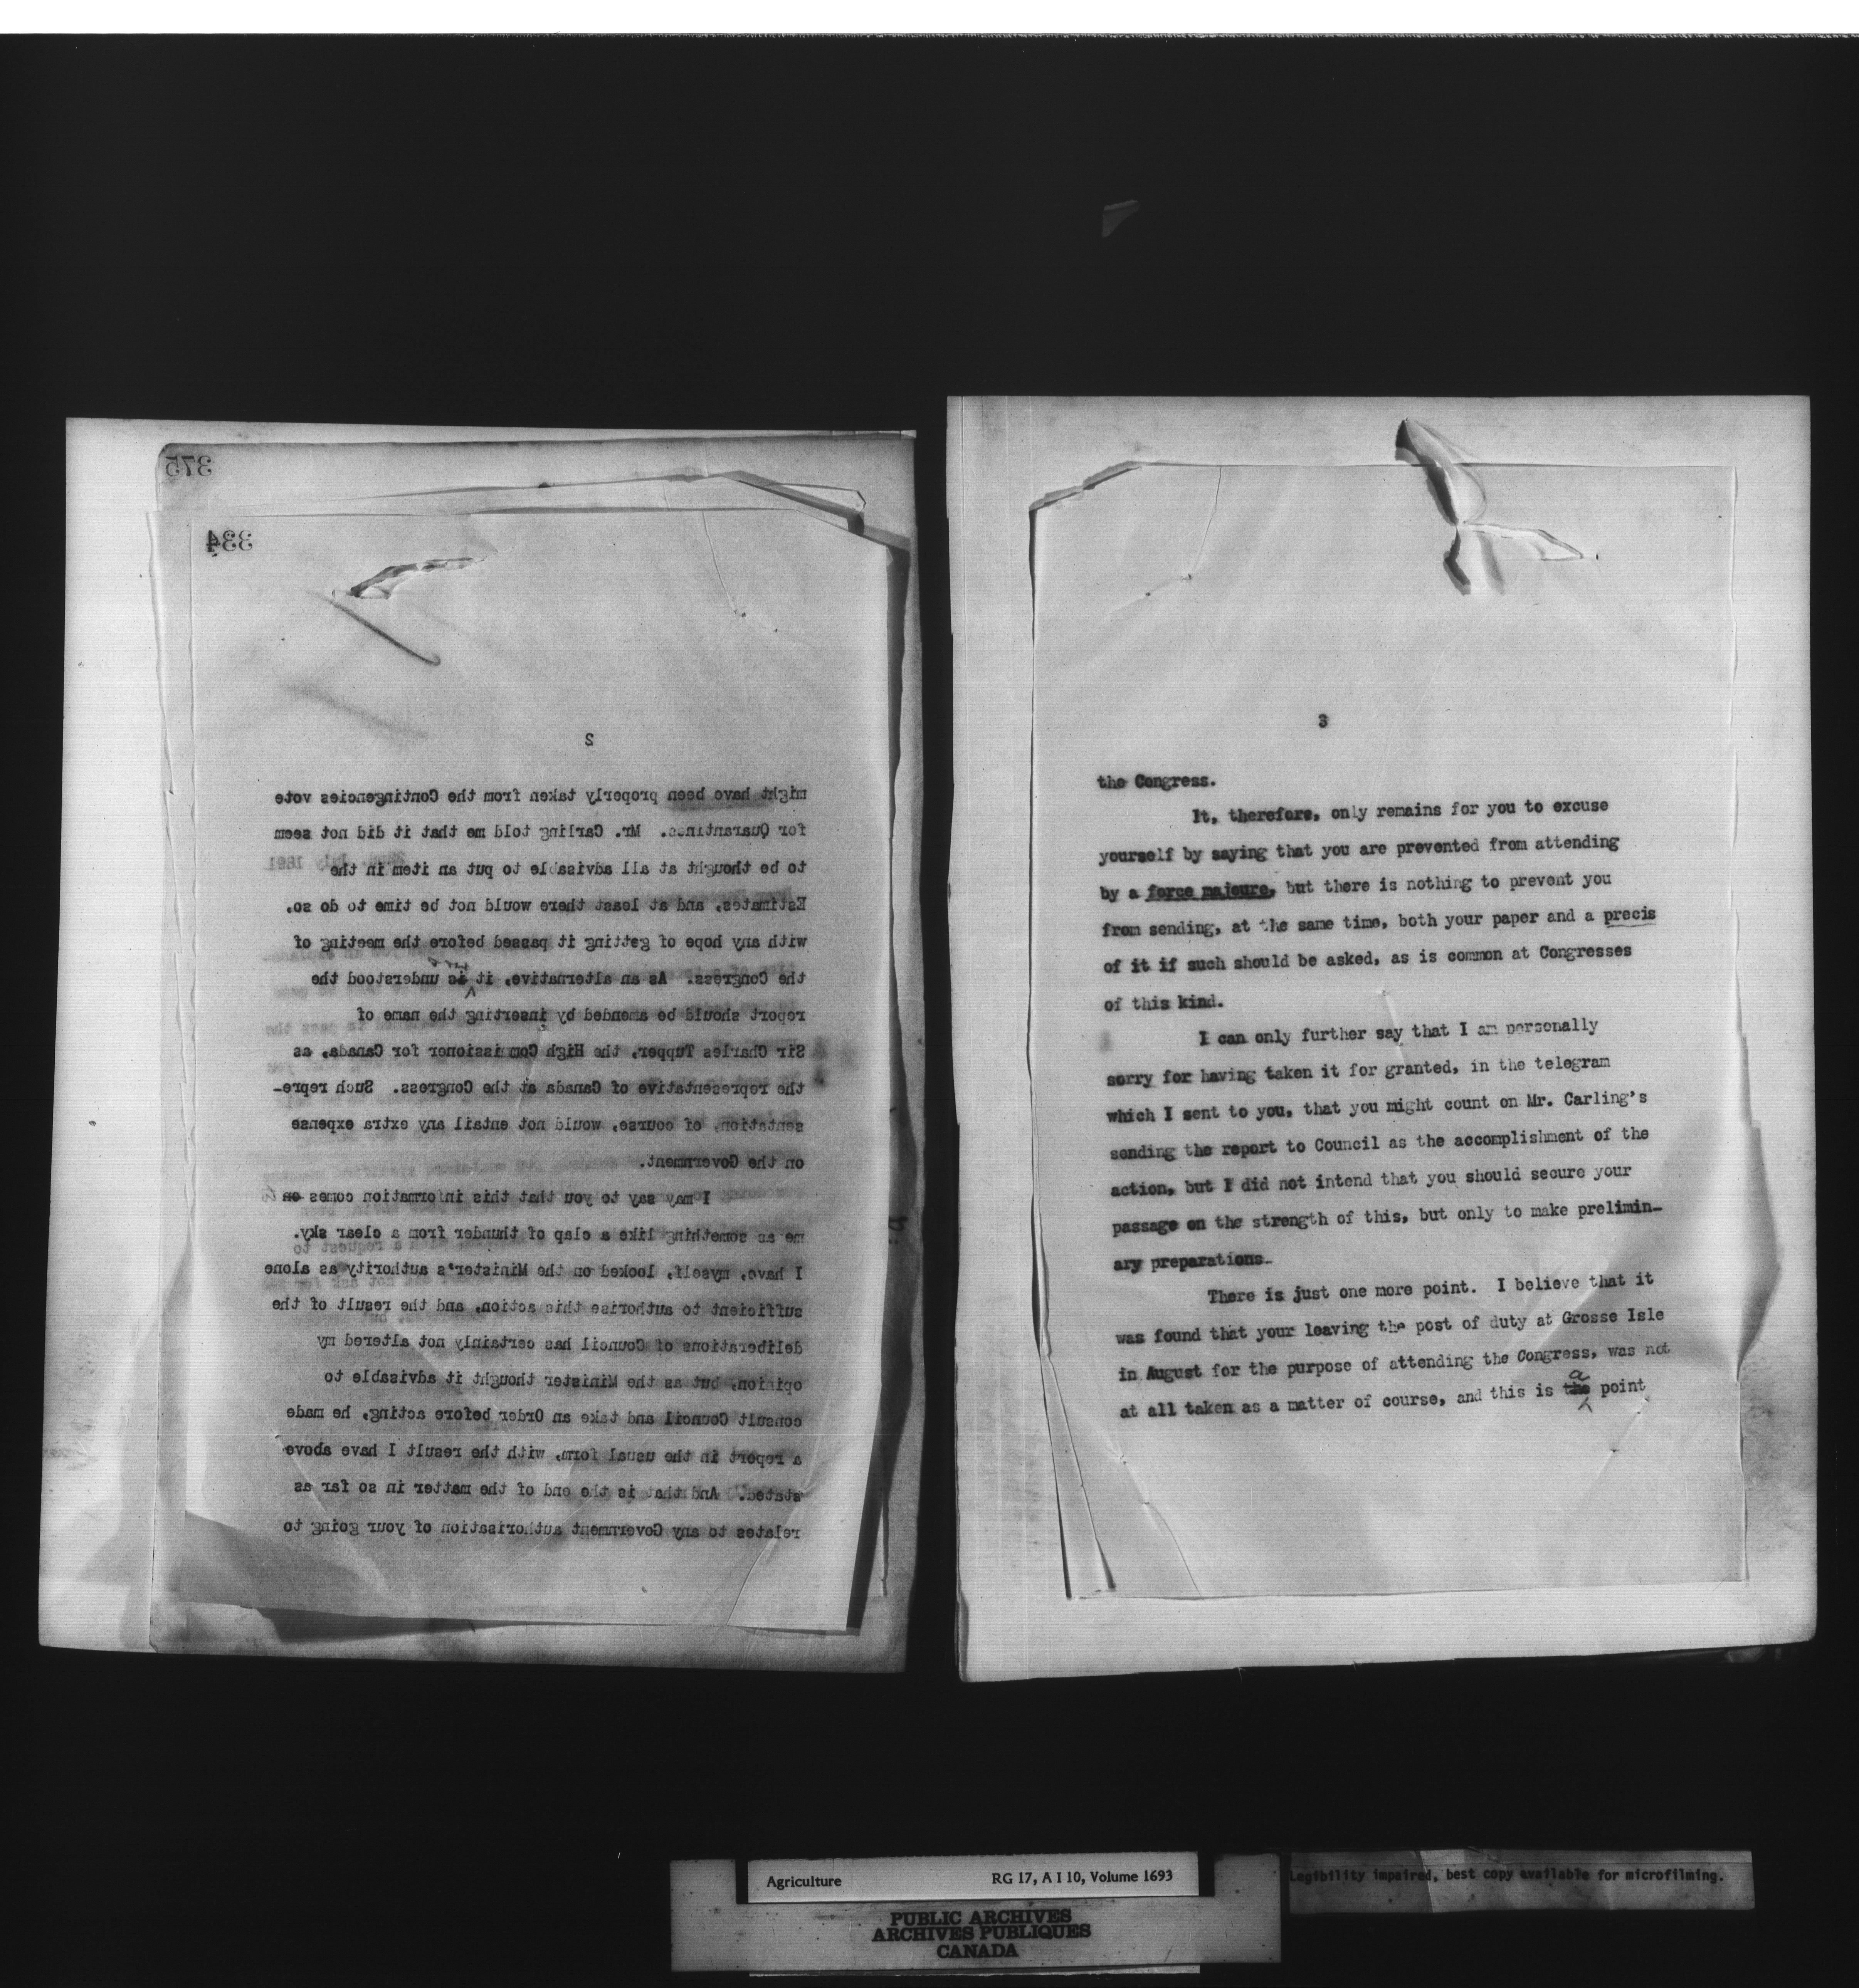 375
334
2
might have been properly taken from the Contingencies vote
for Quarantines. Mr. Carling told me that it did not seem
to be thought at all advisable to put an item in the
Estimates, and at least there would not be time to do so,
with any hope of getting it passed before the meeting of
the Congress. As an alternative, it is understood the
report should be amended by inserting the name of
Sir Charles Tupper, the High Commissioner for Canada, as
the representative of Canada at the Congress. Such repre-
sentation, of course, would not entail any extra expense
on the Government.
I may say to you that this information comes on to
me as something like a clap of thunder from a clear sky.
I have, myself, looked on the Minister's authority as alone
sufficient to authorise this action, and the result of the
deliberations of Council has certainly not altered my
opinion, but as the Minister thought it advisable to
consult Council and take an Order before acting, he made
a report in the usual form, with the result I have above
stated. And that is the end of the matter in so far as
relates to any Government authorisation of your going to
3
the Congress.
It, therefore, only remains for you to excuse
yourself by saying that you are prevented from attending
by a force majeure, but there is nothing to prevent you
from sending, at the same time, both your paper and a precis
of it if such should be asked, as is common at Congresses
of this kind.
I can only further say that I am personally
sorry for having taken it for granted, in the telegram
which I sent to you, that you might count on Mr. Carling's
sending the report to Council as the accomplishment of the
action, but I did not intend that you should secure your
passage on the strength of this, but only to make prelimin-
ary preparations.
There is just one more point. I believe that it
was found that your leaving the post of duty at Grosse Isle
in August for the purpose of attending the Congress, was not
a
at all taken as a matter of course, and this is the point
Agriculture RG 17, A I 10, Volume 1693
Legibility impaired, best copy available for microfilming.
PUBLIC ARCHIVES
ARCHIVES PUBLIQUES
CANADA